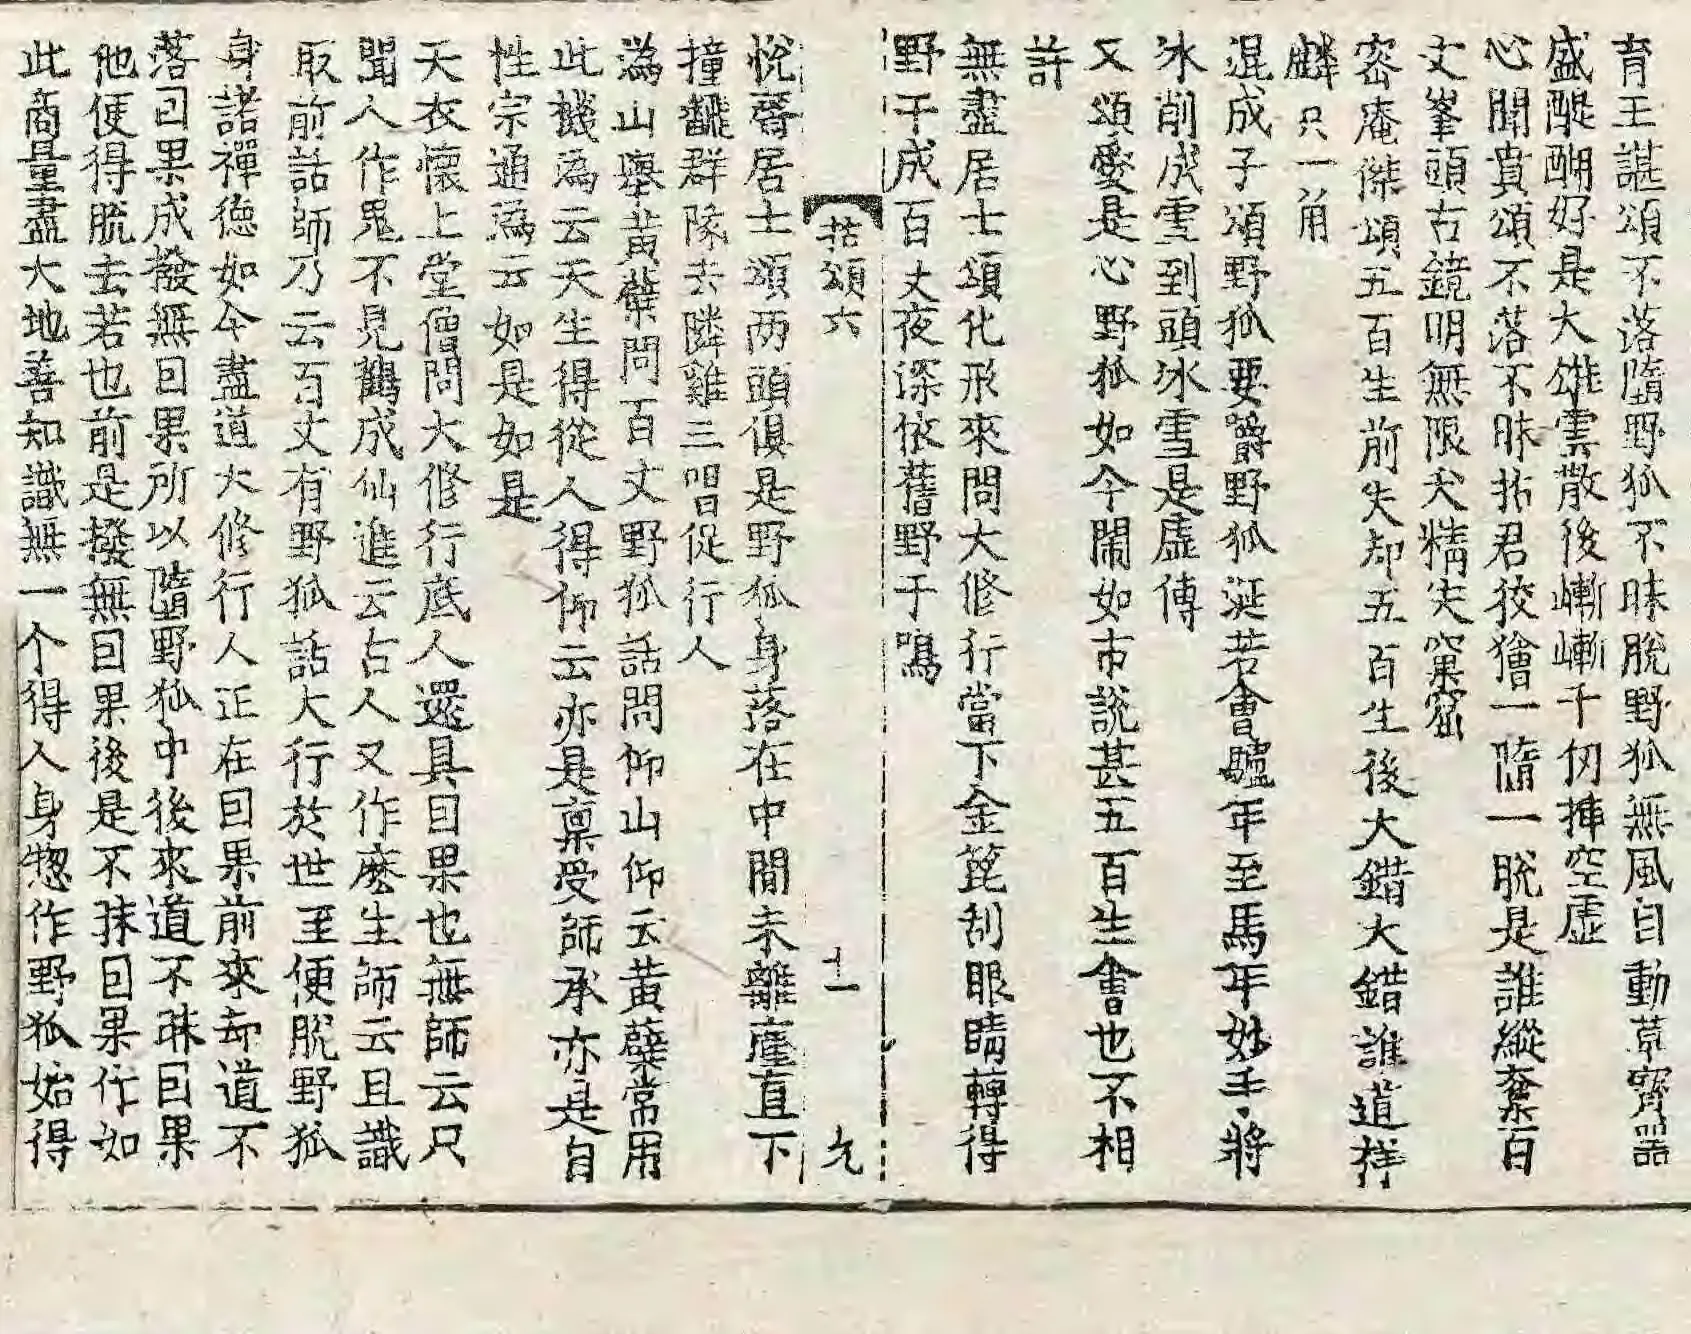 育王諶頌不落墮野狐不昧脫野狐無風自動草寶器
盛醍醐好是大雄雲散後嶄嶄千仞揷空虛
心聞賁頌不落不昧拈君狡獪一墮一脫是誰縱奪百
丈峯頭古鏡明無限犬精失窠窟
密庵傑頌五百生前失却五百生後大錯大錯誰道祥
麟只一角
混成子頌野狐要嚼野狐涎若會驢年至馬年妙手將
冰削成雪到頭冰雪是虛傳
又頌愛是心野狐如今鬧如市說甚五百生會也不相
許
無盡居士頌化形來問大修行當下金篦刮眼睛轉得
野干成百丈夜深依舊野干鳴
拈頌六 十一 允
悅齋居士頌两頭俱是野狐身落在中間未離塵直下
撞翻群隊去隣雞三唱促行人
潙山舉黃蘗問百丈野狐話問仰山仰云黃蘗常用
此機潙云天生得從人得仰云亦是稟受師承亦是自
性宗通潙云如是如是
天衣懷上堂僧問大修行底人還具因果也無師云只
聞人作鬼不見鶴成仙進云古人又作麽生師云且識
取前話師乃云百丈有野狐話大行於世至便脫野狐
身諸禪德如今盡道大修行人正在因果前來却道不
落因果成撥無因果所以墮野狐中後來道不昧因果
他便得脫去若也前是撥無因果後是不抹因果作如
此商量盡大地善知識無一个得人身惣作野狐始得